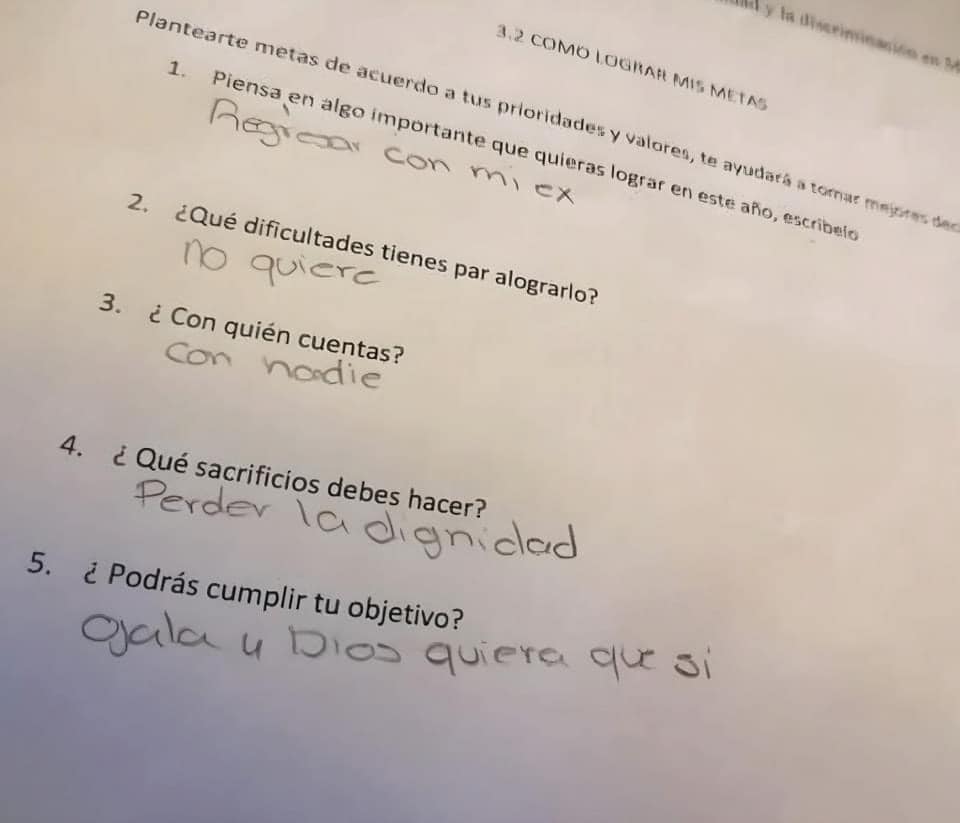 y la discriminación en
3.2 COMO LOGRAR MIS METAS
Plantearte metas de acuerdo a tus prioridades y valores, te ayudará a tomar mejores
1. Piensa en algo importante que quieras lograr en este año, escribelo
Regresar con mi ex
2. ¿Qué dificultades tienes par alograrlo?
no quiere
3. ¿ Con quién cuentas?
Con nadie
4. ¿ Qué sacrificios debes hacer?
Perder la dignidad
5. ¿ Podrás cumplir tu objetivo?
Ojala y Dios quiera que si